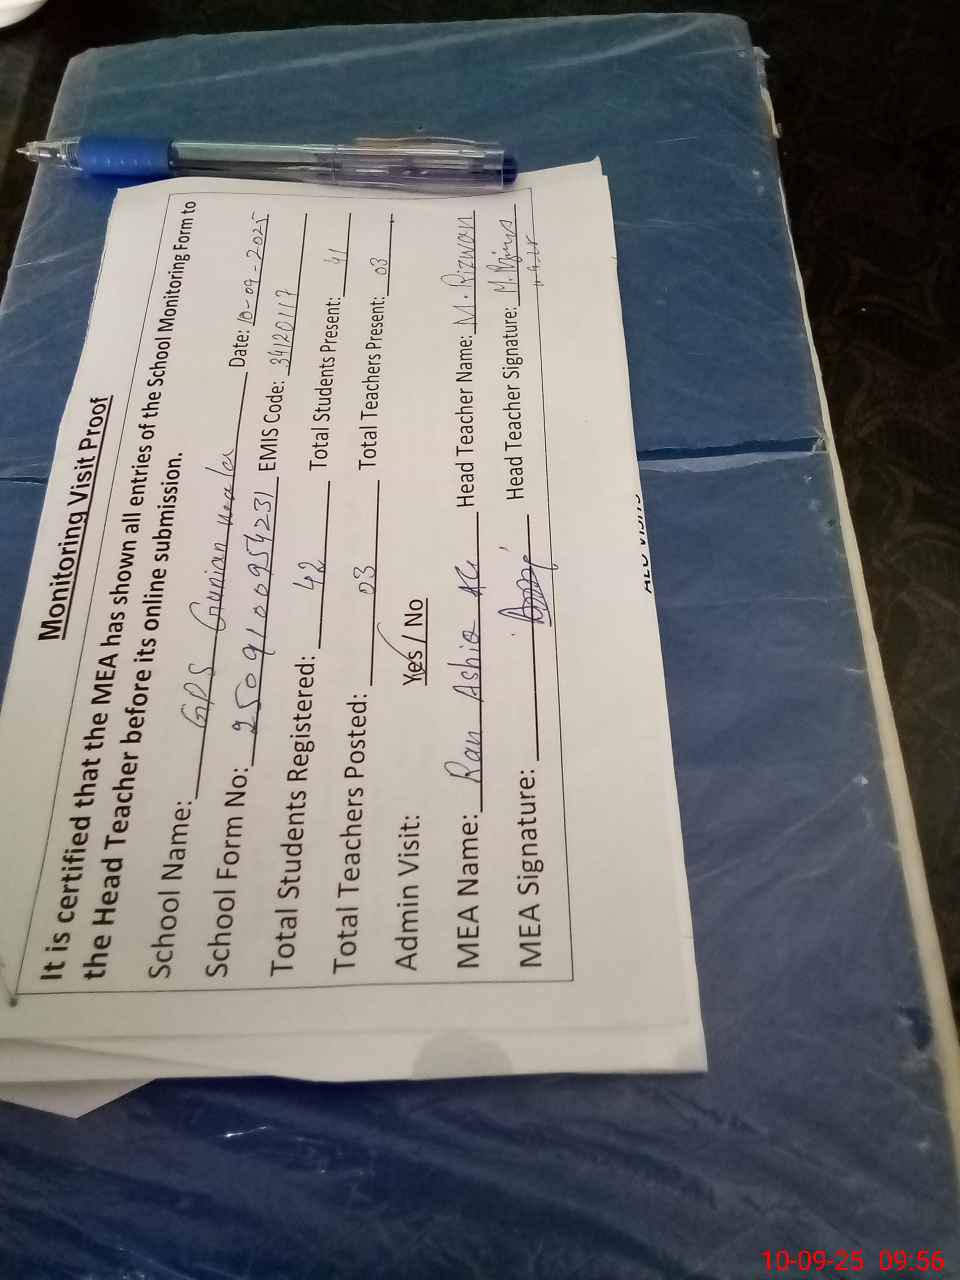 Monitoring Visit Proof
It is certified that the MEA has shown all entries of the School Monitoring Form to
the Head Teacher before its online submission.
School Name: GPS Gunian Date: 10-09-2025
School Form No: 2509100954231 EMIS Code: 34120117
Total Students Registered: 42 Total Students Present: 41
Total Teachers Posted: 03 Total Teachers Present: 03
Admin Visit: Yes / No
MEA Name: Ran Ashiq Head Teacher Name: M. Rizwan
MEA Signature: Head Teacher Signature: M. Rizwan
10-09-25 09:56